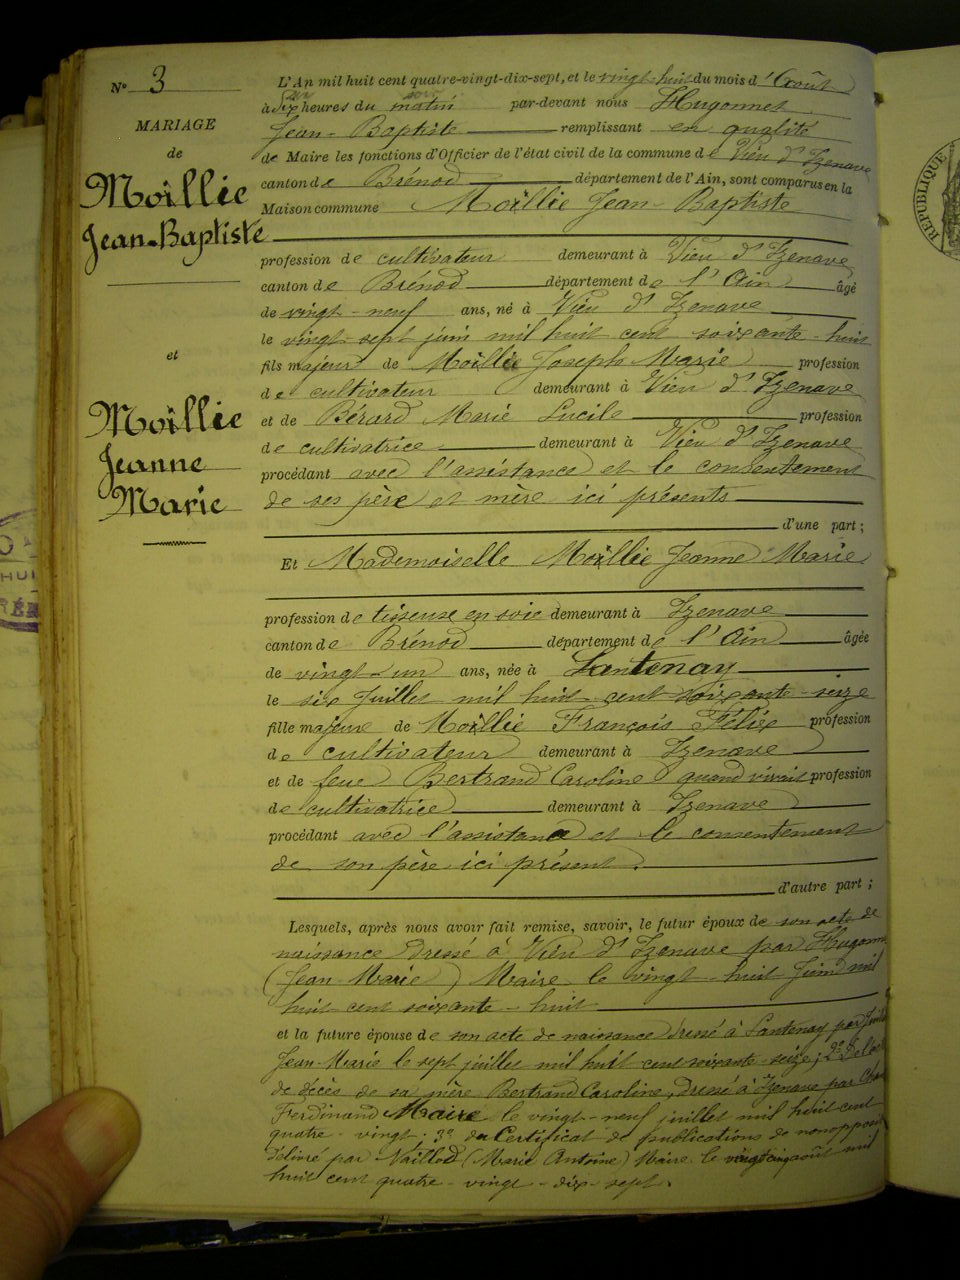 N° 3
MARIAGE
de
Moillie
Jean-Baptiste
et
Moillie
Jeanne
Marie
L'An mil huit cent quatre-vingt-dix-sept, et le vingt-huit du mois d'Août
à six heures du soir par-devant nous Hugonnet
Jean-Baptiste remplissant en qualité
de Maire les fonctions d'Officier de l'état civil de la commune de Vieu d'Izenave
canton de Brénod département de l'Ain, sont comparus en la
Maison commune Moillie Jean-Baptiste
profession de cultivateur demeurant à Vieu d'Izenave
canton de Brénod département de l'Ain âgé
de vingt-neuf ans, né à Vieu d'Izenave
le vingt sept juin mil huit cent soixante-huit
fils majeur de Moillie Joseph Marie profession
de cultivateur demeurant à Vieu d'Izenave
et de Bérard Marie Lucile profession
de cultivatrice demeurant à Vieu d'Izenave
procédant avec l'assistance et le consentement
de ses père et mère ici présents
d'une part ;
Et Mademoiselle Moillie Jeanne Marie
profession de tisseuse en soie demeurant à Izenave
canton de Brénod département de l'Ain âgée
de vingt-un ans, née à Lantenay
le six Juillet mil huit-cent soixante-seize
fille majeure de Moillie François Félix profession
de cultivateur demeurant à Izenave
et de feue Bertrand Caroline quand vivait profession
de cultivatrice demeurant à Izenave
procédant avec l'assistance et le consentement
de son père ici présent.
d'autre part ;
Lesquels, après nous avoir fait remise, savoir, le futur époux de son acte de
naissance dressé à Vieu d'Izenave par Hugonnet
(Jean-Marie) Maire le vingt-huit Juin mil
huit cent soixante-huit
et la future épouse de son acte de naissance dressé à Lantenay par
Jean-Marie le sept juillet mil huit cent soixante-seize ; 2°
de décès de sa mère Bertrand Caroline, dressé à Izenave par
Ferdinand Maire le vingt-neuf juillet mil huit cent
quatre-vingt ; 3° du Certificat de publications de non opposit
délivré par Vaillod (Marie Antoine) Maire le vingt cinq août mil
huit cent quatre-vingt-dix-sept.
RÉPUBLIQUE